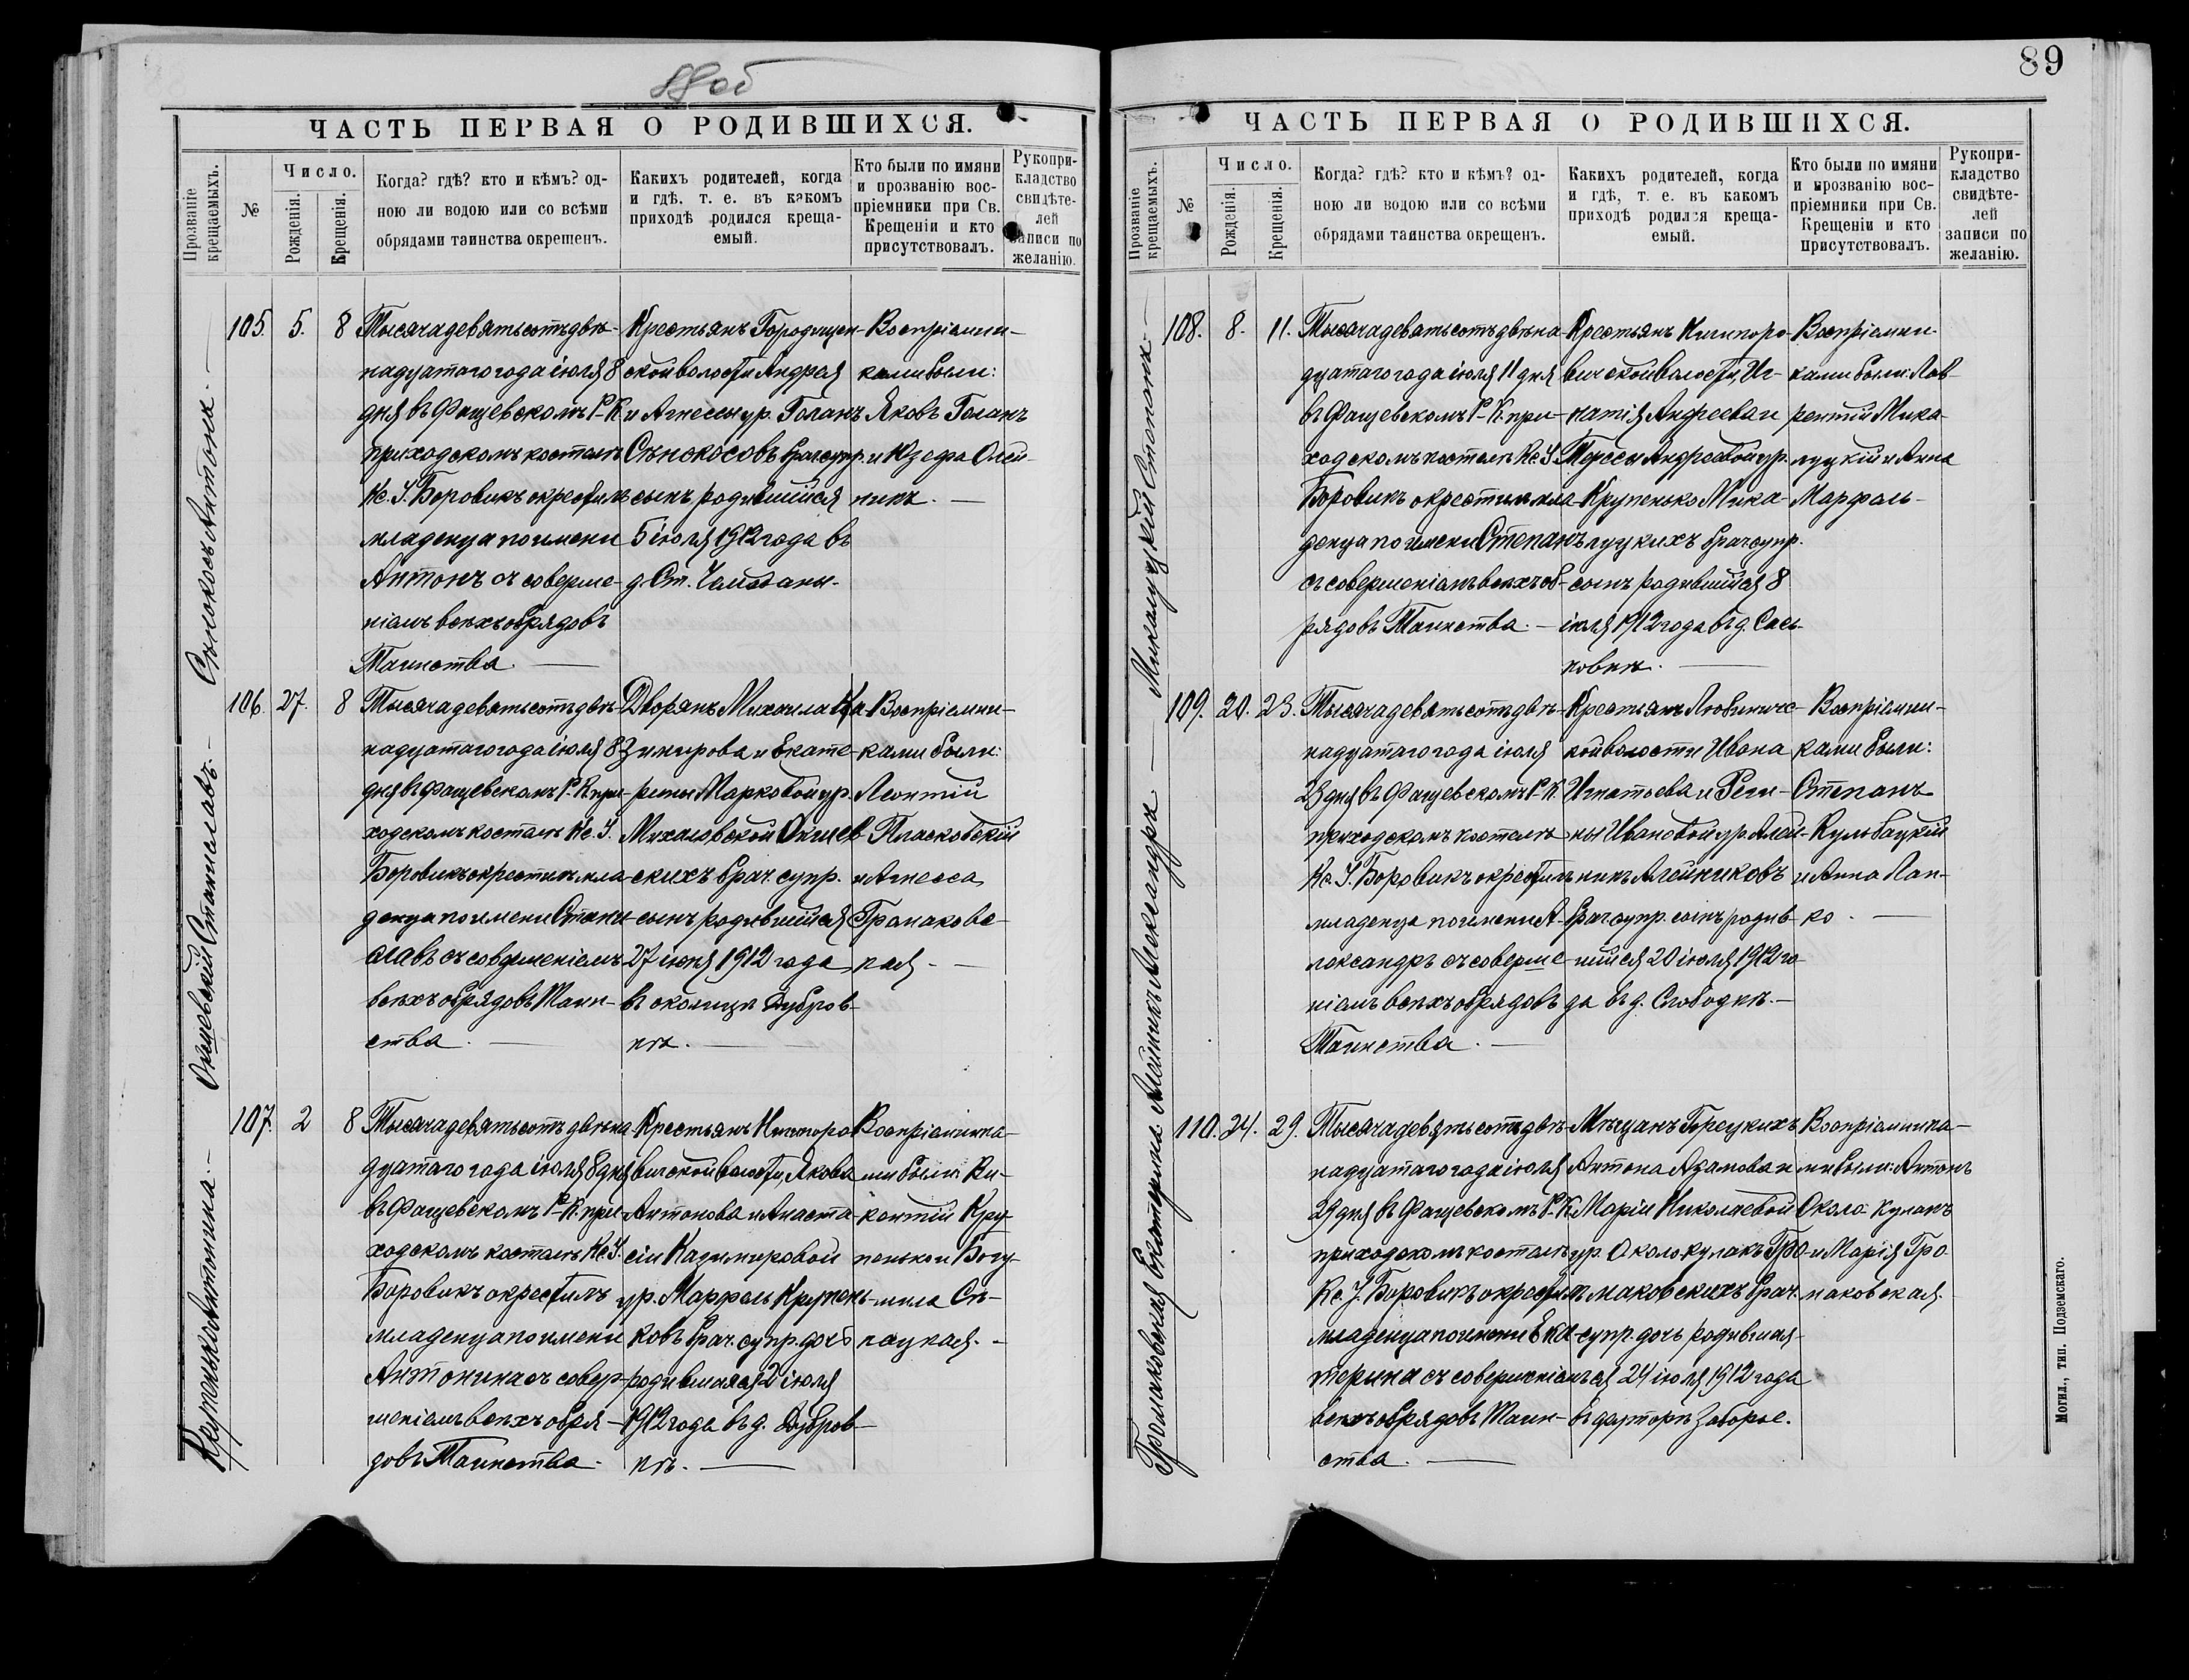 88об
ЧАСТЬ ПЕРВАЯ О РОДИВШИХСЯ.
Прозваніе крещаемыхъ.
№
Число.
Рожденія.
Крещенія.
Когда? гдѣ? кто и кѣмъ? од-
ною ли водою или со всѣми
обрядами таинства окрещенъ.
Какихъ родителей, когда
и гдѣ, т. е. въ какомъ
приходѣ родился креща-
емый.
Кто были по имяни
и прозванію вос-
пріемники при Св.
Крещеніи и кто
присутствовалъ.
Рукопри-
кладство
свидѣте-
лей
записи по
желанію.
Сѣнокосъ Антонъ.—
105. 5. 8
Тысяча девятьсотъ двѣ-
надцатаго года іюля 8
дня въ Фащевскомъ Р-К
приходскомъ костелѣ
Кс. І. Боровикъ окрестилъ
младенца по имени
Антонъ съ соверше-
ніемъ всѣхъ обрядовъ
Таинства.—
Крестьянъ Городищен-
ской волости Андрея
и Агнессы ур. Голанъ
Сѣнокосовъ брач. супр.
сынъ родившійся
5 іюля 1912 года въ
д. Ст. Чемоданы.
Воспріемни-
ками были:
Яковъ Голанъ
и Юзефа Олей-
никъ.—
Окщевскій Станиславъ.—
106. 27. 8
Тысяча девятьсотъ двѣ-
надцатаго года іюля 8
дня въ Фащевскомъ Р.-К. при-
ходскомъ костелѣ Кс. І.
Боровикъ окрестилъ мла-
денца по имени Стани-
славъ съ совершеніемъ
всѣхъ обрядовъ Таин-
ства.—
Дворянъ Михаила Ка-
зимирова и Екате-
рины Марковой ур.
Михаловской Окщев-
скихъ брач. супр.
сынъ родившійся
27 іюня 1912 года
въ околицѣ Дубров-
кѣ.—
Воспріемни-
ками были:
Леонтій
Пласковскій
и Агнесса
Громаковс-
кая.—
Крупенько Антонина.—
107. 2 8
Тысяча девятьсотъ двѣна-
дцатаго года іюля 8 дня
въ Фащевскомъ Р-К. при-
ходскомъ костелѣ Кс. І.
Боровикъ окрестилъ
младенца по имени
Антонина съ совер-
шеніемъ всѣхъ обря-
довъ Таинства.
Крестьянъ Ничипоро-
вичской волости, Якова
Антонова и Анаста-
сіи Казимировой
ур. Марфель Крупень-
ковъ брач. супр. дочь
родившаяся 2 іюля
1912 года въ д. Дубров-
кѣ.—
Воспріемника-
ми были: Ви-
кентій Кру-
пенько и Богу-
мила Си-
пацкая.—
89
ЧАСТЬ ПЕРВАЯ О РОДИВШИХСЯ.
Прозваніе крещаемыхъ.
№
Число.
Рожденія.
Крещенія.
Когда? гдѣ? кто и кѣмъ? од-
ною ли водою или со всѣми
обрядами таинства окрещенъ.
Какихъ родителей, когда
и гдѣ, т. е. въ какомъ
приходѣ родился креща-
емый.
Кто были по имяни
и прозванію вос-
пріемники при Св.
Крещеніи и кто
присутствовалъ.
Рукопри-
кладство
свидѣте-
лей
записи по
желанію.
Микалуцкій Степанъ.—
108. 8. 11.
Тысяча девятьсотъ двѣна-
дцатаго года іюля 11 дня
въ Фащевскомъ Р-К. при-
ходскомъ костелѣ Кс. І.
Боровикъ окрестилъ мла-
денца по имени Степанъ
съ совершеніемъ всѣхъ об-
рядовъ Таинства.—
Крестьянъ Ничипоро-
вичской волости, Иг-
натія Андреева и
Терессы Андреевой ур.
Крупенько Мика-
луцкихъ брач. супр.
сынъ родившійся 8
іюля 1912 года въ д. Сась-
ковкѣ.—
Воспріемни-
ками были: Лав-
рентій Мика-
луцкій и Анна
Марфель-
Алейникъ Александръ—
109. 20. 23.
Тысяча девятьсотъ двѣ-
надцатаго года іюля
23 дня въ Фащевскомъ Р-К.
приходскомъ костелѣ
Кс. І. Боровикъ окрестилъ
младенца по имени А-
лександръ съ соверше-
ніемъ всѣхъ обрядовъ
Таинства.—
Крестьянъ Любиничс-
кой волости Ивана
Игнатьева и Реги-
ны Ивановой ур. Алей-
никъ Алейниковъ
брач. супр. сынъ родив-
шійся 20 іюля 1912 го-
да въ д. Слободкѣ.—
Воспріемни-
ками были:
Степанъ
Кульбацкій
и Анна Лап-
ко.—
Громаковская Екатерина
110. 24. 29.
Тысяча девятьсотъ двѣ-
надцатаго года іюля
29 дня въ Фащевскомъ Р.-К
приходскомъ костелѣ
Кс. І. Боровикъ окрестилъ
младенца по имени Ека-
терина съ совершеніемъ
всѣхъ обрядовъ Таин-
ства.—
Мѣщанъ Горецкихъ
Антона Адамова и
Маріи Николаевой
ур. Околокулакъ Гро-
маковскихъ брач.
супр. дочь родившая-
ся 24 іюля 1912 года
въ фагторѣ Заборье.
Воспріемника-
ми были: Антонъ
Около-Кулакъ
и Марія Гро-
маковская.
Могил., тип. Подземскаго.